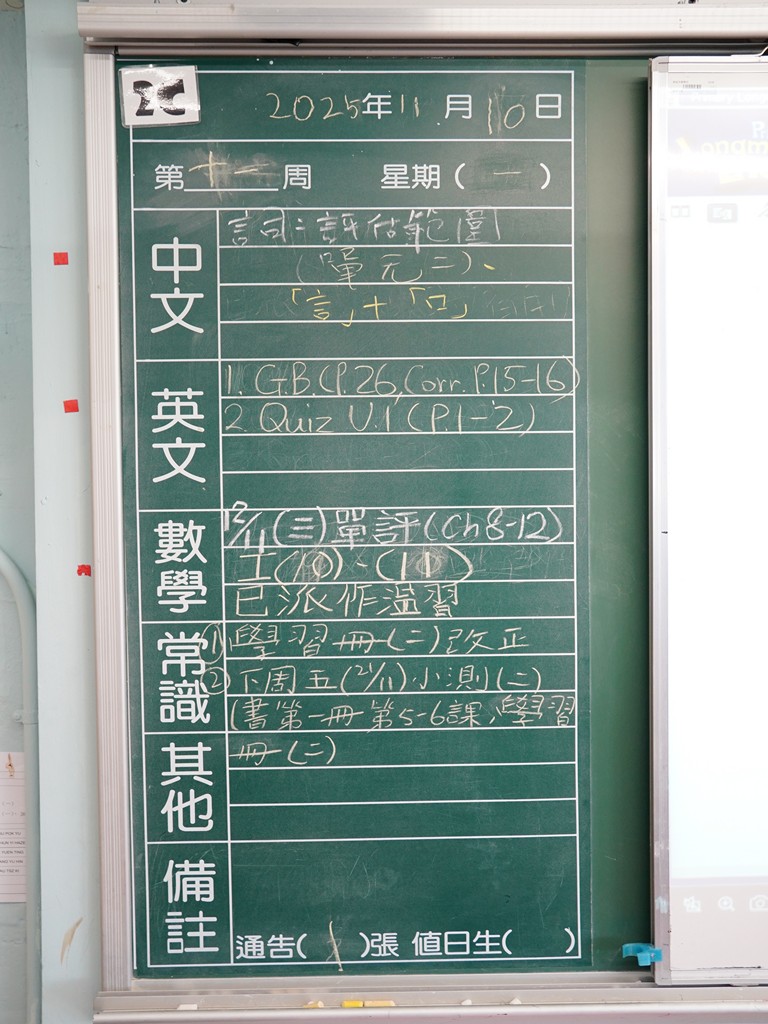 2C
2025年11月10日
第十一周 星期(一)
中文
詞:評估範圍
(單元二)、
「言」+「口」
英文
1. G.B.(P.26, Corr. P.15-16)
2. Quiz U.1 (P.1-2)
數學
12/11 (三) 單評 (Ch 8-12)
工(10)、(11)
已派作溫習
常識
① 學習冊(二)改正
② 下周五(21/11)小測(二)
(書第一冊第5-6課,學習
冊(二)
其他
備註
通告( )張 值日生( )